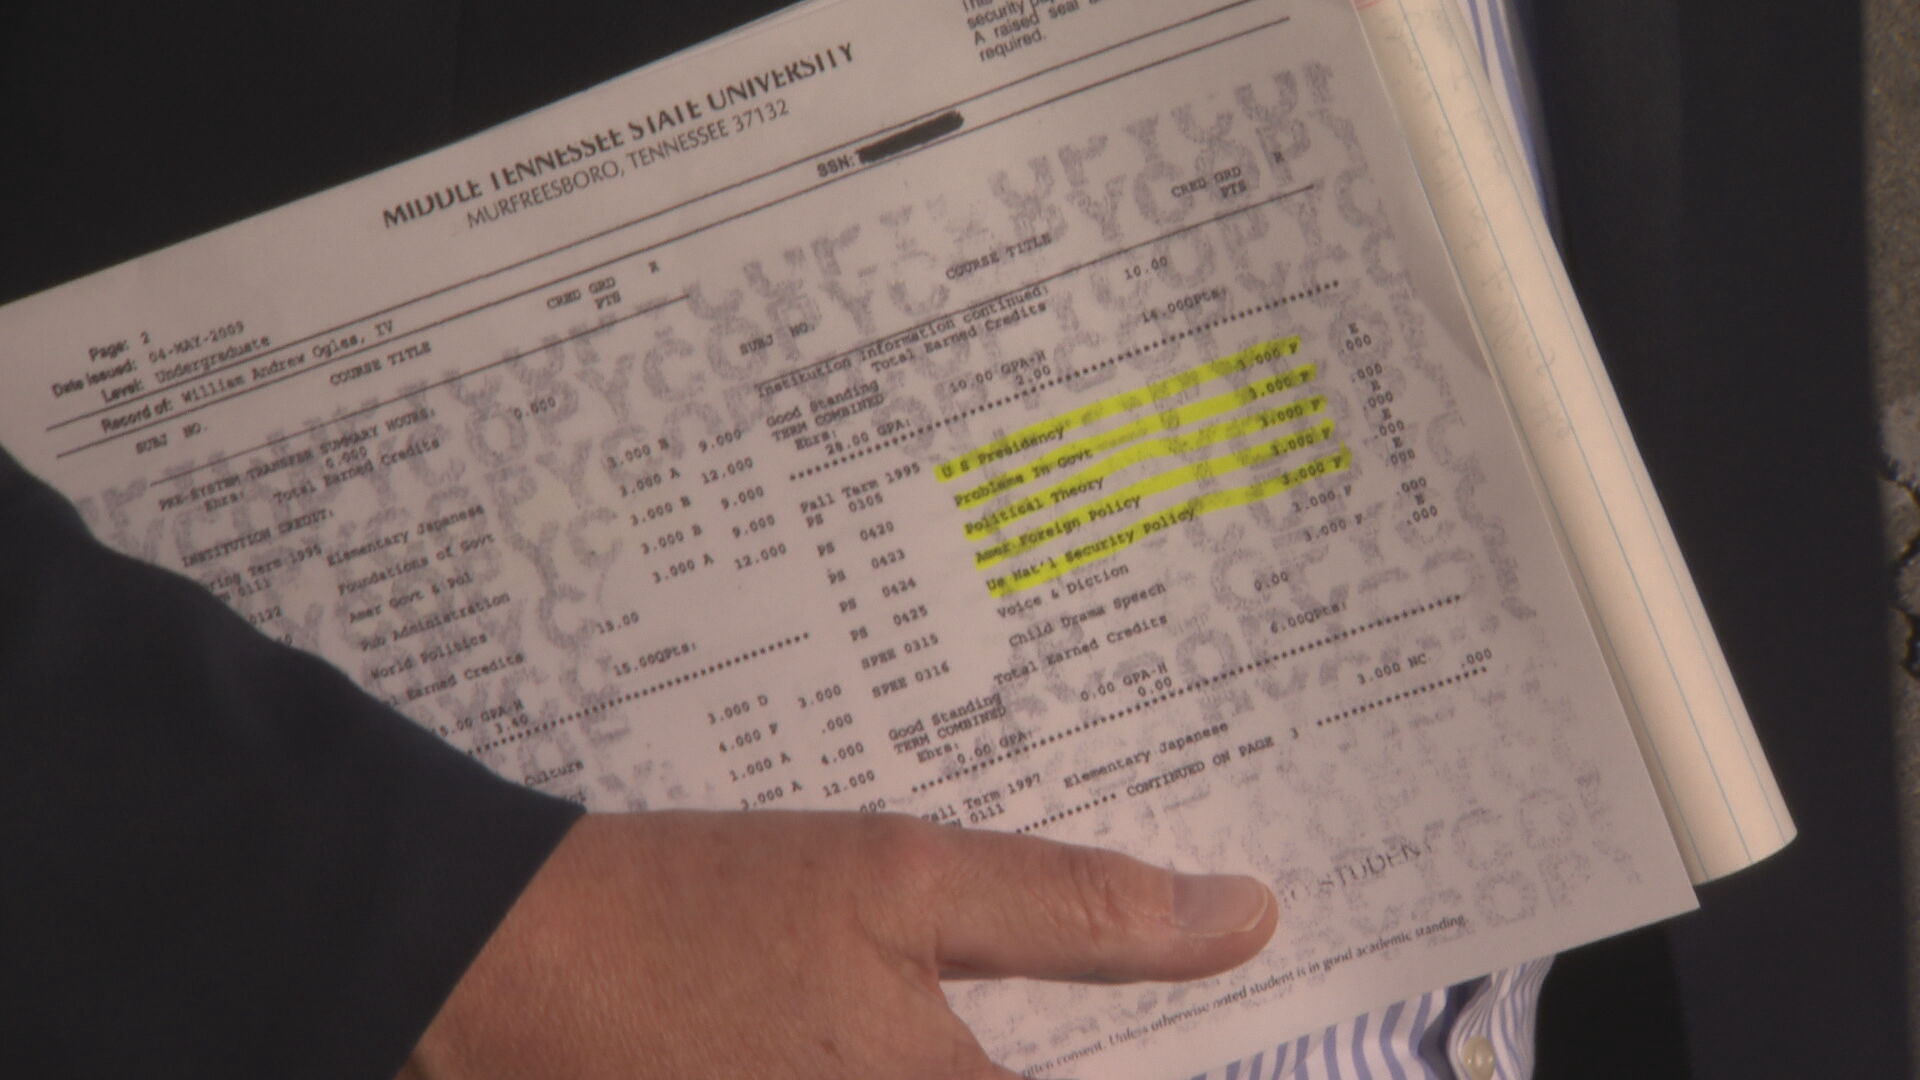 security
A raised seal
required.
MIDDLE TENNESSEE STATE UNIVERSITY
MURFREESBORO, TENNESSEE 37132
SSN:
Page: 2
Date Issued: 04-MAY-2009
Level: Undergraduate
Record of: William Andrew Ogles, IV
SUBJ NO. COURSE TITLE CRED GRD PTS R
PRE-SYSTEM TRANSFER SUMMARY HOURS:
Ehrs: 0.000
Total Earned Credits 0.000
INSTITUTION CREDIT:
ring Term 1995
0111 Elementary Japanese 3.000 B 9.000
0122 Foundations of Govt 3.000 A 12.000
Amer Govt & Pol 3.000 B 9.000
Pub Administration 3.000 B 9.000
World Politics 3.000 A 12.000
l Earned Credits 15.00
15.00 GPA-H 15.00QPts:
3.40
3.000 D 3.000
4.000 F .000
Culture 1.000 A 4.000
3.000 A 12.000
000
SUBJ NO. COURSE TITLE CRED GRD PTS R
Institution Information continued:
Total Earned Credits 10.00
Good Standing
TERM COMBINED 10.00 GPA-H 14.00QPts:
Ehrs: 28.00 GPA: 2.90
Fall Term 1995
PS 0305 U S Presidency 3.000 F .000 E
PS 0420 Problems In Govt 3.000 F .000 E
PS 0423 Political Theory 3.000 F .000 E
PS 0424 Amer Foreign Policy 3.000 F .000 E
PS 0425 Us Nat'l Security Policy 3.000 F .000
SPEE 0315 Voice & Diction 3.000 F .000 E
SPEE 0316 Child Drama Speech 3.000 F .000
Total Earned Credits 0.00
Good Standing
TERM COMBINED 0.00 GPA-H 6.00QPts:
Ehrs: 0.00 GPA: 0.00
Fall Term 1997
0111 Elementary Japanese 3.000 NC .000
CONTINUED ON PAGE 3
STUDENT
itten consent. Unless otherwise noted student is in good academic standing.